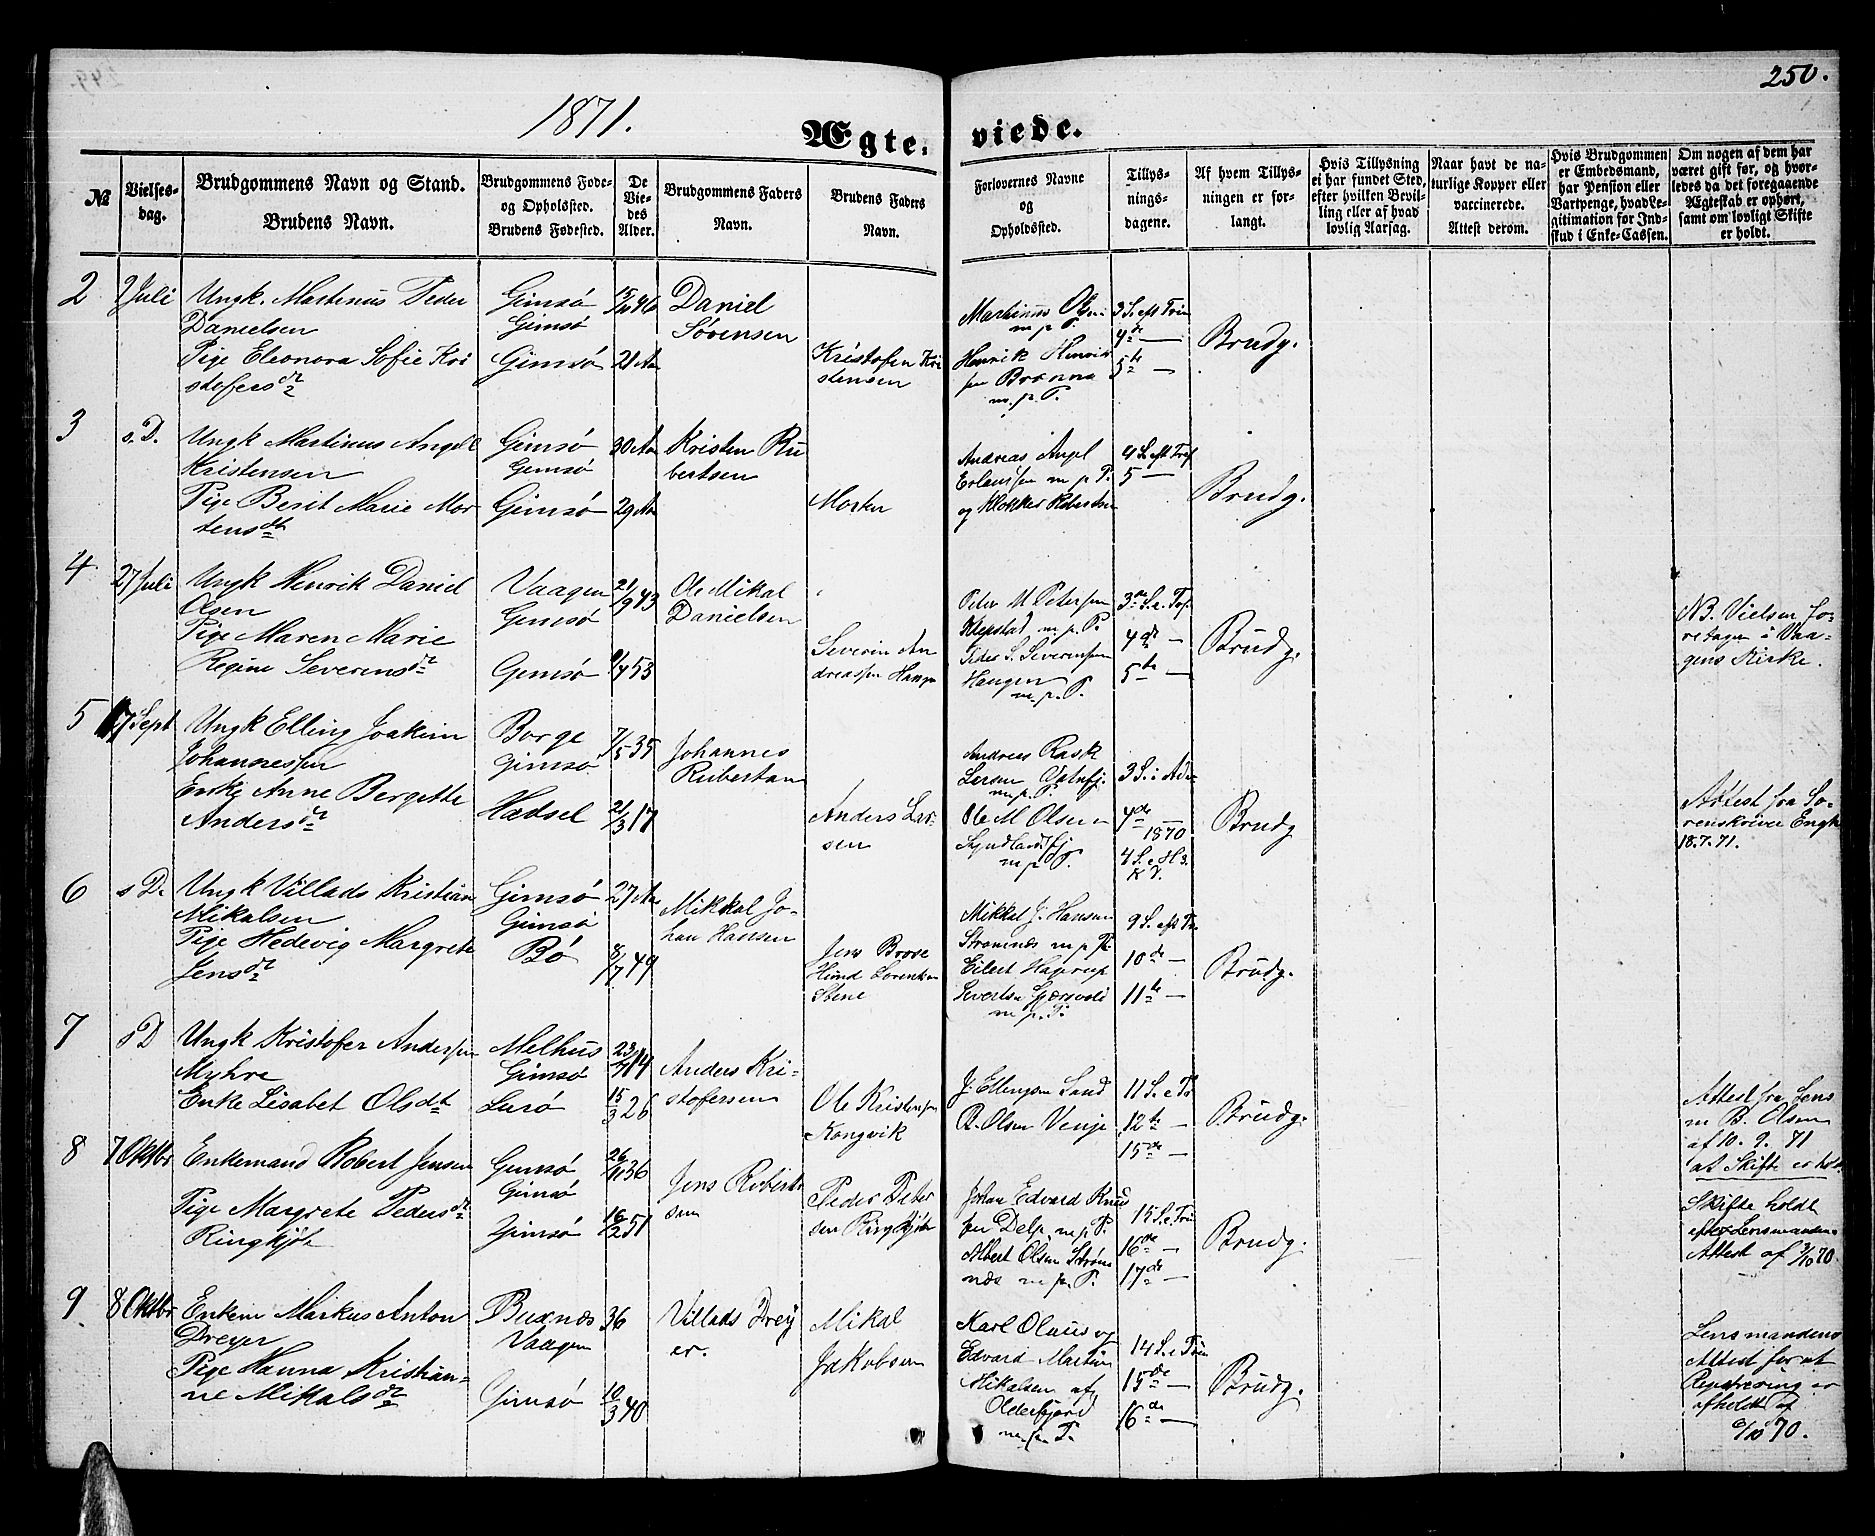 250.
1871.
Ægte-viede.
№
Vielses-
dag.
Brudgommens Navn og Stand.
Brudens Navn.
Brudgommens Føde-
og Opholdsted.
Brudens Fødested.
De
Vie-
des
Alder.
Brudgommens Faders
Navn.
Brudens Faders
Navn.
Forlovernes Navne
og
Opholdsted.
Tillys-
nings-
dagene.
Af hvem Tillys-
ningen er for-
langt.
Hvis Tillysning
ei har fundet Sted,
efter hvilken Bevil-
ling eller af hvad
lovlig Aarsag.
Naar havt de na-
turlige Kopper eller
vaccinerede.
Attest derom.
Hvis Brudgommen
er Embedsmand,
har Pension eller
Vartpenge, hvad Le-
gitimation for Ind-
skud i Enke-Cassen.
Om nogen af dem har
været gift før, og hvor-
ledes da det foregaaende
Ægteskab er ophørt,
samt om lovligt Skifte
er holdt.
2
2 Juli
Ungk. Martinus Peder
Danielsen
Pige Eleonora Sofie Kri
stofersdr
Gimsø
Gimsø
Gimsø
21 Aa
Daniel
Sørensen
Kristofer Kri
stensen
Martinus Olsen
m. p. P.
Henrik Henrik
sen
m. p. P.
3 S. eft Trin
4de —
5te —
Brudg.
3
s. D.
Ungk Martinus Angel
Kristensen
Pige Berit Marie Mor
tensdt
Gimsø
Gimsø
Gimsø
30 Aa
29 Aa
Kristen Ru
bertsen
Morten
Andreas Angel
m p P.
og Klokker Robertsen
4 S. eft Tref
5 —
Brudg.
4
27 Juli
Ungk Henrik Daniel
Olsen
Pige Maren Marie
Regine Severinsdr
Vaagen
Gimsø
Gimsø
21/9 43
9/7 53
Ole Mikal
Danielsen
Severin An
dreassen Haugen
Peter M Petersen
Klepstad m. p. P.
Peder S. Severinsen
Haugen
m. p. P.
4de —
5te —
Brudg.
NB. Vielsen fo-
retagen i Vaa-
gens Kirke.
5
17 Sept
Ungk Elling Joakim
Johannessen
Enke Anne Bergitte
Andersdr
Borge
Gimsø
Hadsel
7/5 35
21/3 17
Johannes
Rubertsen
Anders Lar-
sen
Andreas Rask
Larsen Vatnfj.
m. p. P.
Ole M Olsen
Syndlandsfj
m p P.
4de —
1870
Brudg
Attest fra So-
renskriver Engh
18.7.71.
6
s D.
Ungk Villads Kristian
Mikalsen
Pige Hedevig Margrete
Jensdr
Gimsø
Gimsø
Bø
27 Aa
8/7 49
Mikkal Jo-
han Hansen
Jens Brose
Hind Lorentsen
Stene
Mikkel J. Hansen
Strømnæs m p P.
Eilert Hagerup
m. p. P.
9 S. eft Tr.
10de —
11te —
Brudg.
7
s D
Ungk Kristofer Andersen
Myhre
Enke Lisabet Olsdt
Melhus
Gimsø
Lurø
15/3 26
Anders Kri-
stofersen
Ole Kristensen
Kongsvik
J. Ellingsen Sand
R. Olsen Venje
11 S. e Tr
12te —
15de —
Brudg.
Attest fra Lens
m B. Olsen
af 10. 9. 71
at Skifte er holdt
8
7 Oktbr
Enkemand Robert Jensen
Pige Margrete Pedersdr
Ringkjøb
Gimsø
Gimsø
Gimsø
16/2 51
Jens Roberts
sen
Peder Peter
sen Ringkjøb
Johan Edvard Knud
sen Delp. m. p. P.
Albert Olsen Strøm
næs m p P.
15 S. e Trin
16de —
17de —
Brudg.
Skifte holdt
efter Lensmanden
Attest af 3/10 70.
9
8 Oktbr
Enkem Markus Anton
Dreyer
Pige Hanna Kristian-
ne Mikalsdr
Buxnæs
Vaagen
Gimsø
36
10/3 40
Villads Drey
er.
Mikal
Jakobsen
Karl Olaus og
Edvard Martin
Mikalsen af
Olderfjord
m. p. P.
14 S. e Trin
15de —
16de —
Brudg.
Lensmandens
Attest for at
Registrering er
afholdt af
6/10 70.